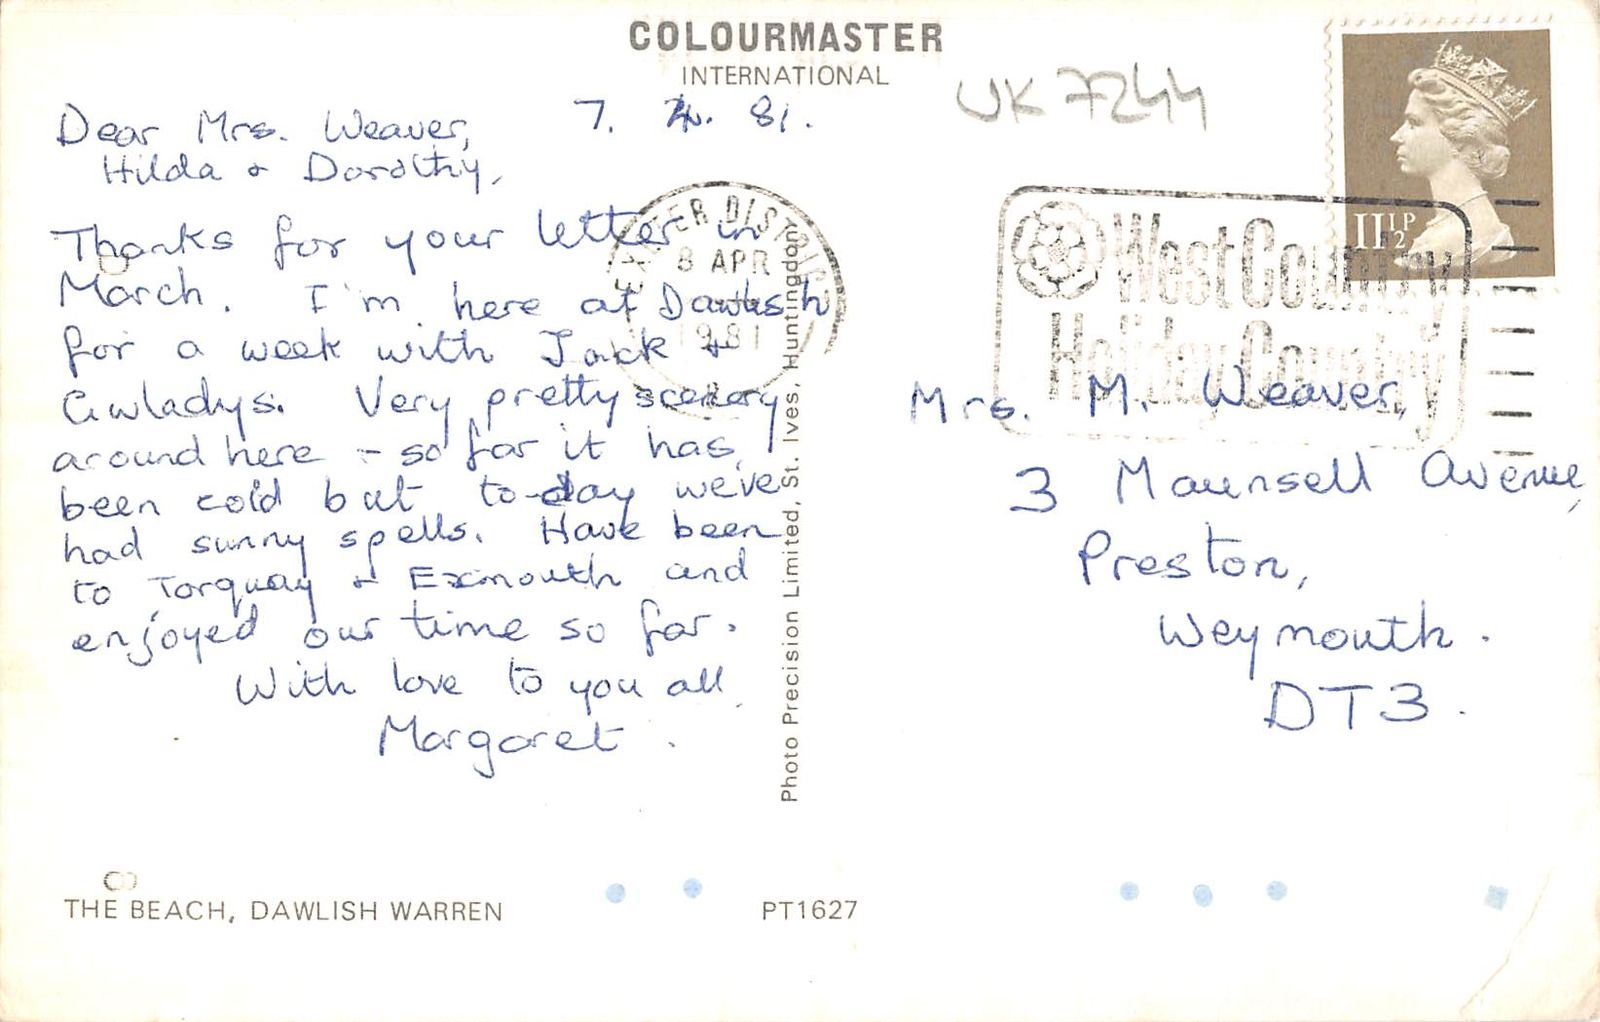 COLOURMASTER
INTERNATIONAL
UK 7244
7. 4. 81.
Dear Mrs. Weaver,
Hilda & Dorothy,
Thanks for your letter in
March. I'm here at Dawlish
for a week with Jack &
Gwladys. Very pretty scenery
around here - so far it has
been cold but to-day we've
had sunny spells. Have been
to Torquay & Exmouth and
enjoyed our time so far.
With love to you all
Margaret.
EXETER DISTRICT
8 APR
1981
Photo Precision Limited, St. Ives, Huntingdon
11½P
West Country
Holiday Country
Mrs. M. Weaver,
3 Maunsell Avenue,
Preston,
Weymouth.
DT3.
THE BEACH, DAWLISH WARREN
PT1627